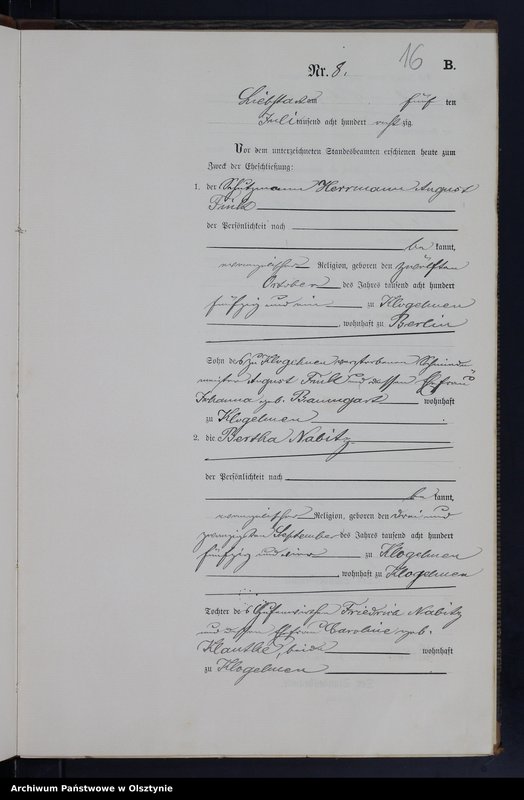 16
Nr. 8. B.
Liebstadt am fünf ten
Juli tausend acht hundert acht zig.
Vor dem unterzeichneten Standesbeamten erschienen heute zum
Zweck der Eheschließung:
1. der Schutzmann Herrmann August
Funk
der Persönlichkeit nach
be kannt,
evangelischer Religion, geboren den zwölften
October des Jahres tausend acht hundert
fünfzig und ein zu Klogehnen
, wohnhaft zu Berlin
Sohn des zu Klogehnen verstorbenen
August Funk und dessen Ehefrau
Johanna geb. Baumgart wohnhaft
zu Klogehnen
2. die Bertha Nabitz
der Persönlichkeit nach
be kannt,
evangelischer Religion, geboren den drei und
zwanzigsten September des Jahres tausend acht hundert
fünfzig und zu Klogehnen
, wohnhaft zu Klogehnen
Tochter des Friedrich Nabitz
und dessen Ehefrau Caroline geb.
beide wohnhaft
zu Klogehnen
Archiwum Państwowe w Olsztynie